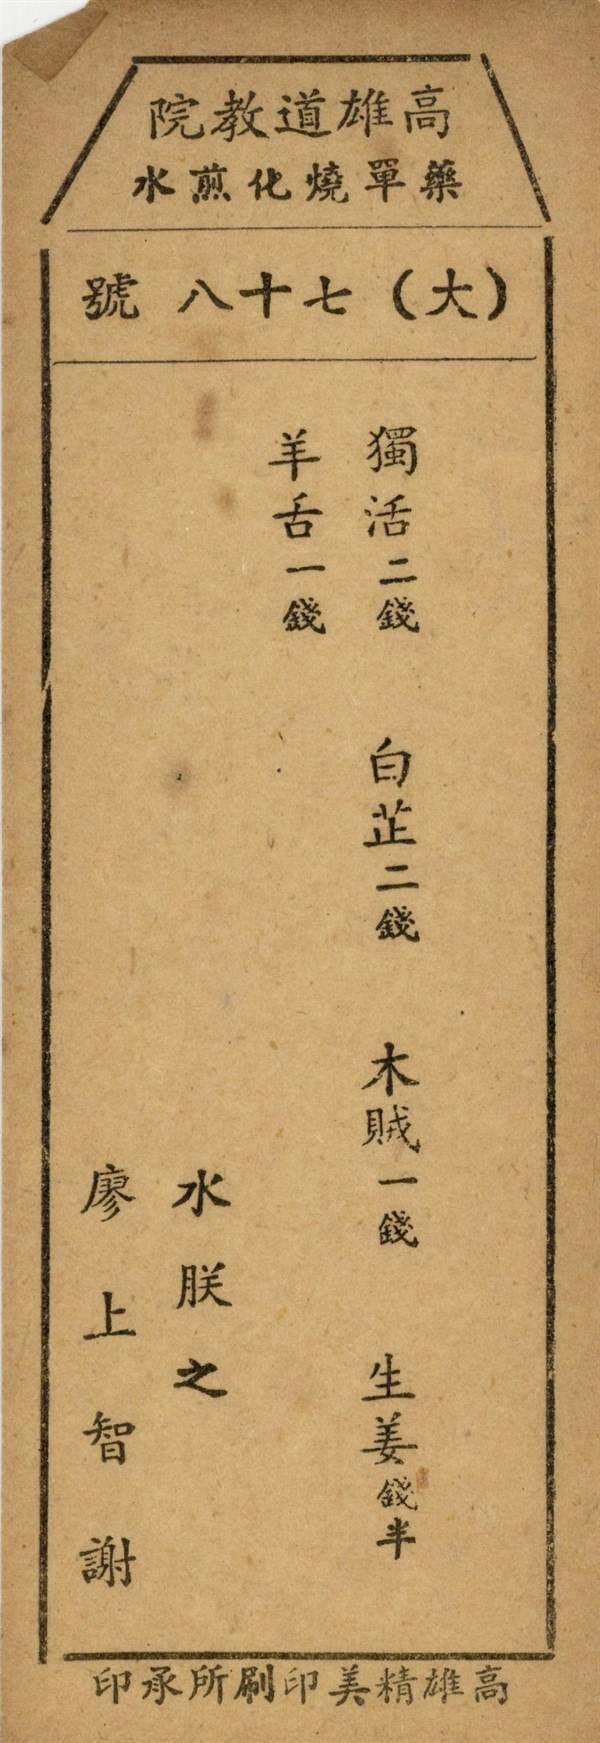 高雄道教院
藥單燒化煎水
(大)七十八號
獨活二錢 白芷二錢 木賊一錢 生姜錢半
羊舌一錢
水朕之
廖上智謝
高雄精美印刷所承印